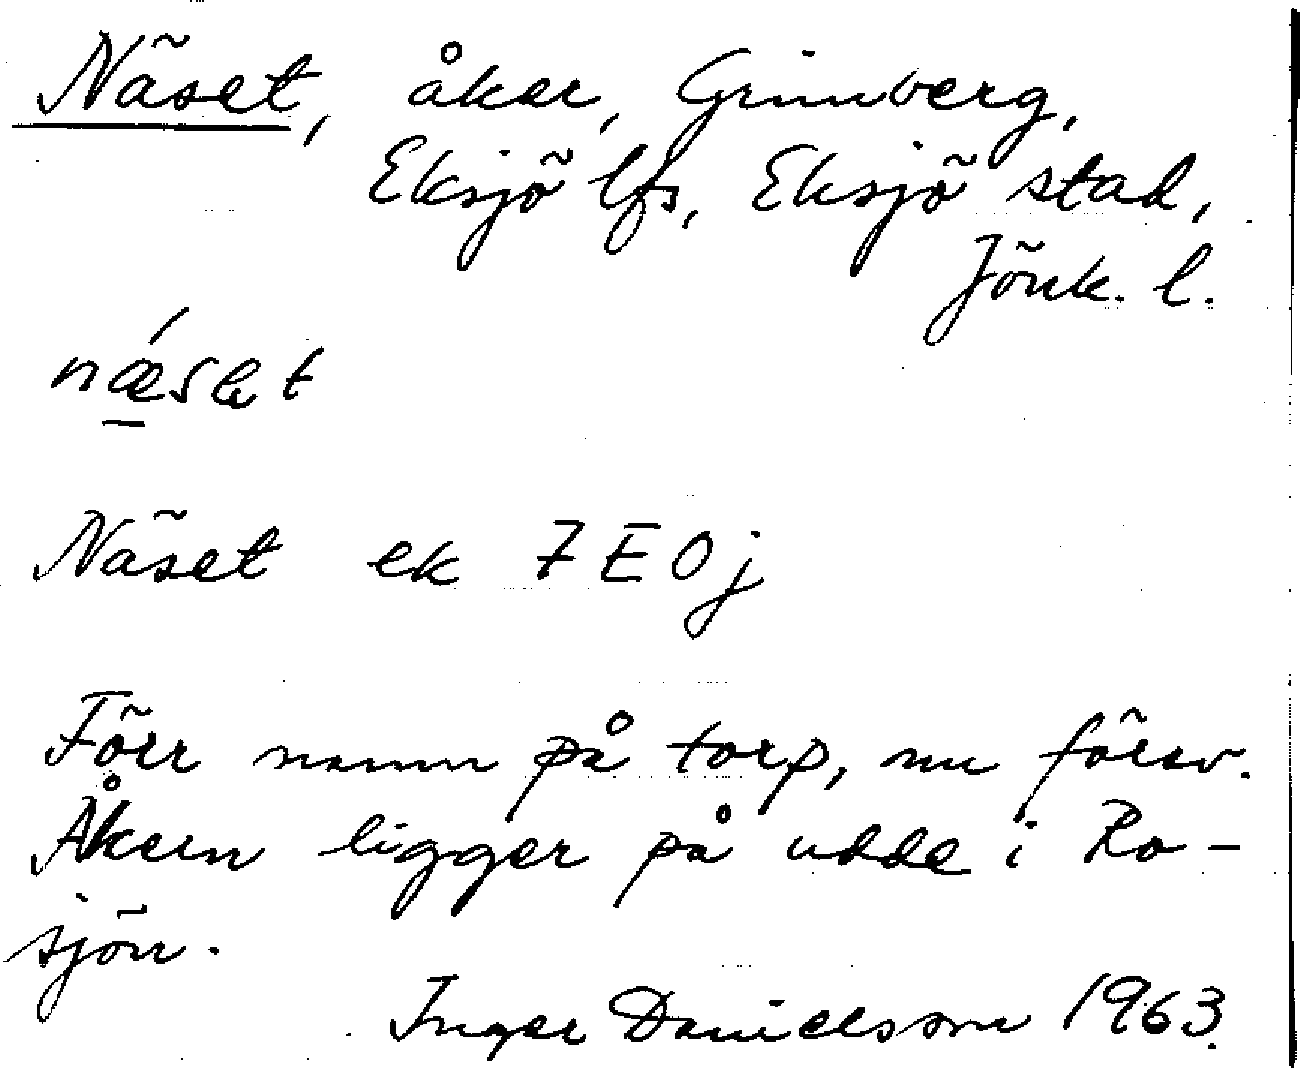 Näset, åker, Grimberg,
Eksjö lfs, Eksjö stad,
Jönk. l.
nǽ̱sət
Näset ek 7E0j
Förr namn på torp, nu försv.
Åkern ligger på udde i Ro-
sjön.
Inger Danielsson 1963.